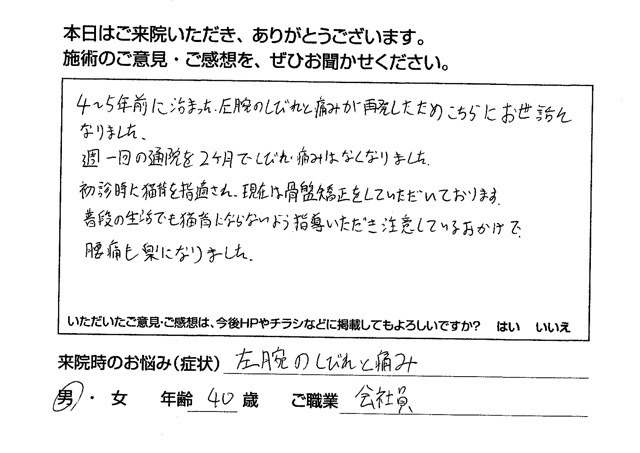 本日はご来院いただき、ありがとうございます。
施術のご意見・ご感想を、ぜひお聞かせください。
4〜5年前に治まった左腕のしびれと痛みが再発したためこちらにお世話に
なりました。
週一回の通院を2ヶ月でしびれ・痛みはなくなりました。
初診時に猫背を指摘され、現在は骨盤矯正をしていただいております。
普段の生活でも猫背にならないよう指導いただき注意しているおかげで、
腰痛も楽になりました。
いただいたご意見・ご感想は、今後HPやチラシなどに掲載してもよろしいですか？ はい いいえ
来院時のお悩み（症状） 左腕のしびれと痛み
男・女 年齢 40 歳 ご職業 会社員